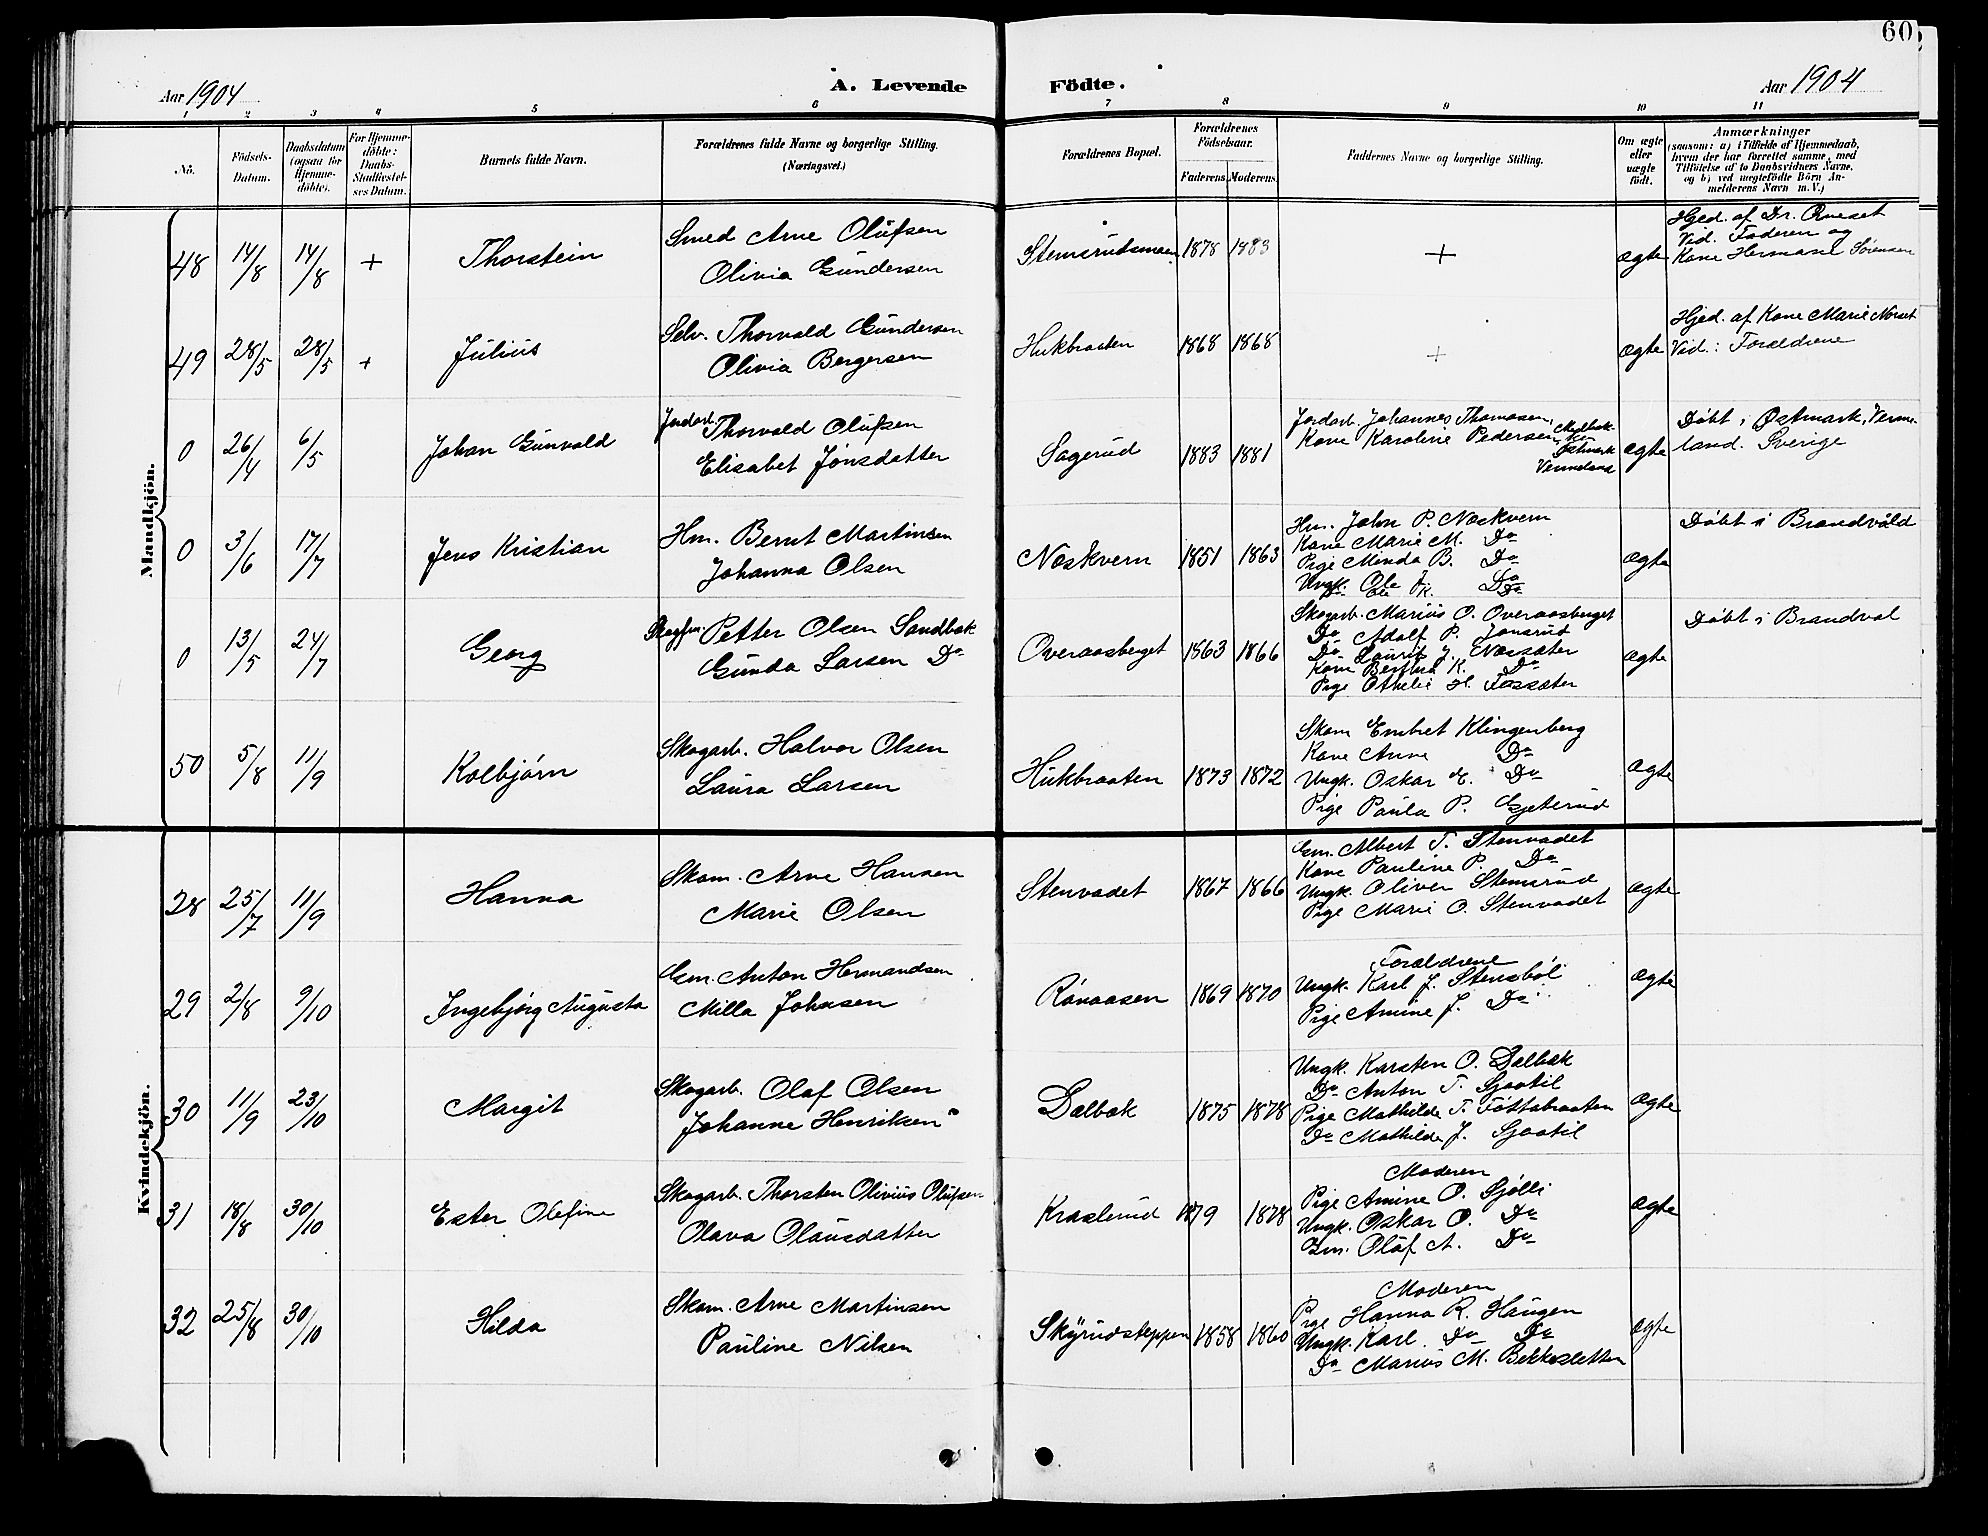 60
Aar 1904
A. Levende
Födte.
Aar 1904
1 2 3 4 5 6 7 8 9 10 11
No.
Födsels-
Datum.
Daabsdatum
(ogsaa for
Hjemme-
döbte).
For Hjemme-
döbte:
Daabs-
Stadfæstel-
ses Datum.
Barnets fulde Navn.
Forældrenes fulde Navne og borgerlige Stilling.
(Næringsvei.)
Forældrenes Bopæl.
Forældrenes
Födselsaar.
Faderens. Moderens.
Faddernes Navne og borgerlige Stilling.
Om ægte
eller
uægte
født.
Anmærkninger
(saasom: a) i Tilfælde af Hjemmedaab,
hvem der har forrettet samme, med
Tilföielse af to Daabsvidners Navne,
og b) ved uægtefödte Börn An-
melderens Navn m. V.)
Mandkjön.
48 14/8 14/8 + Thorstein
Smed Arne Olufsen
Olivia Gundersen
Stemsrudsmoen 1878 1883 + ægte
Hjed. af Dr. Qveset
Vid. Faderen og
Kone Hermane Sörensen
49 28/5 28/5 + Julius
Selv. Thorvald Gundersen
Olivia Bergersen
Hukbraaten 1868 1868 + ægte
Hjed. af Kone Marie Norset
Vid.: Forældrene
0 26/4 6/5 Johan Gunvald
Jordarb. Thorvald Olufsen
Elisabet Jonsdatter
Sagerud 1883 1881
Jordarb. Johannes Thomasen,
Kone Karoline Pedersen,
Östmark
Vermeland
ægte
Döbt i Østmark, Verme-
land. Sverige
0 3/6 17/7 Jens Kristian
Hm. Bernt Martinsen
Johanna Olsen
Noskvern 1851 1863
Hm. John P. Noskvern
Kone Marie M. Do
Pige Minda B. Do
Ungk. Ole K. Do
ægte
Döbt i Brandvold
0 13/5 24/7 Georg
Petter Olsen Sandbæk
Gunda Larsen Do
Overaasberget 1863 1866
Skogarb. Marius O. Overaasberget
Do Adolf P. Jonsrud
Do Laurits J. Næssæter
Kone Berthea K. Do
Pige Othelie H. Fossæter
ægte
Döbt i Brandval
50 5/8 11/9 Kolbjörn
Skogarb. Halvor Olsen
Laura Larsen
Hukbraaten 1873 1872
Skom Embret Klingenberg
Kone Anne Do
Ungk. Oskar E. Do
Pige Paula P. Gjeterud
ægte
Kvindekjön.
28 25/7 11/9 Hanna
Skom. Arne Hansen
Marie Olsen
Stenvadet 1867 1866
Gm. Albert T. Stenvadet
Kone Pauline P. Do
Ungk. Oliver Stemsrud
Pige Marie O. Stenvadet
ægte
29 2/8 9/10 Ingebjörg Augusta
Gm. Anton Hermandsen
Milla Johnsen
Rönaasen 1869 1870
Forældrene
Ungk. Karl J. Stensböl
Pige Amine J. Do
ægte
30 11/9 23/10 Margit
Skogarb. Olaf Olsen
Johanne Henriksen
Dælbæk 1875 1878
Ungk. Karsten O. Dælbæk
Do Anton T. Sjaatil
Pige Mathilde T. Föttabraaten
Do Mathilde J. Sjaatil
ægte
31 18/8 30/10 Ester Olefine
Skogarb. Thorsten Olivius Olufsen
Olava Olausdatter
Kraslerud 1879 1878
Moderen
Pige Amine O. Sjölli
Ungk. Oskar O. Do
Gm. Olaf A. Do
ægte
32 25/8 30/10 Hilda
Skom. Arne Martinsen
Pauline Nilsen
Skyrudsteppen 1858 1860
Moderen
Pige Hanna R. Haugen
Ungk. Karl Do Do
Do Marius M. Bekkesletten
ægte